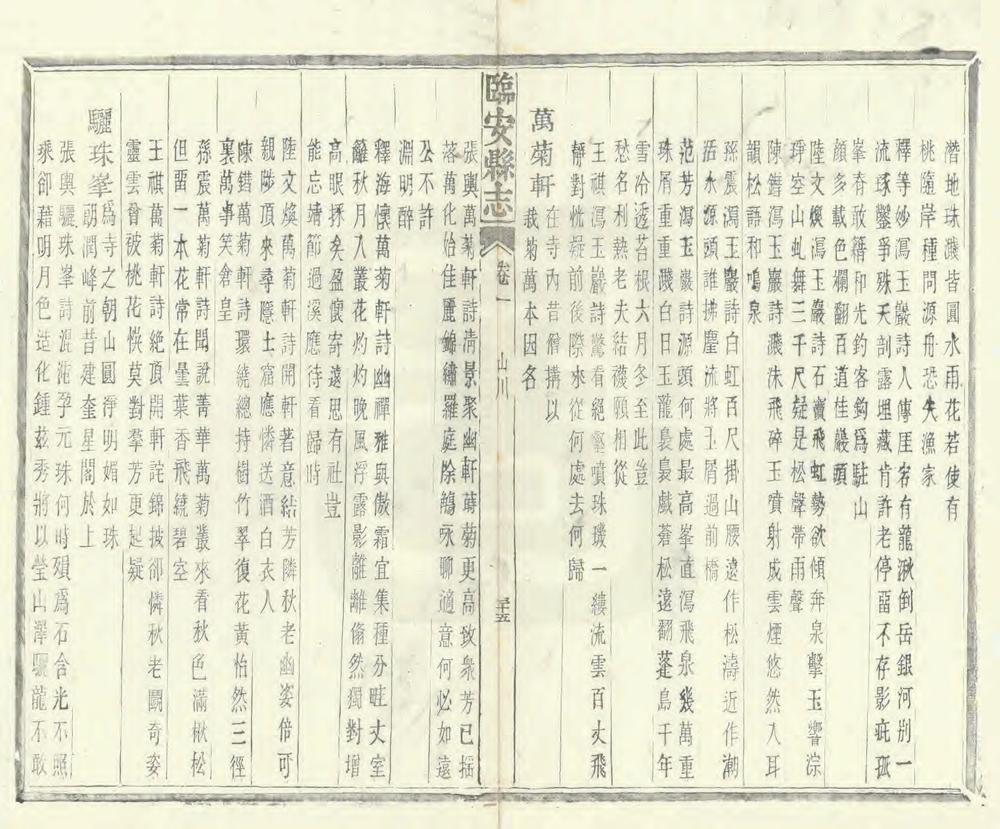 潛地珠濺皆圓水雨花若使有
桃隨岸種問源舟恐失漁家
釋等妙瀉玉巖詩人傳厓客有龍湫倒岳銀河別一
流琢鑿爭殊天剖露埋藏肯許老停畱不存影疵孤
峯脊敢籍和先鈞客鉤爲駐山
顔多載色爛翻百道佳巖頭
陸文煥瀉玉巖詩石竇飛虹勢欲傾奔泉擊玉響淙
琤空山虬舞三千尺疑是松聲帶雨聲
陳錯瀉玉巖詩濺沫飛碎玉噴射成雲煙悠然入耳
韻松語和鳴泉
孫震瀉玉巖詩白虹百尺掛山腰遠作松濤近作潮
活水源頭誰拂塵流將玉屑過前橋
范芳瀉玉巖詩源頭何處最高峯直瀉飛泉幾萬重
珠屑重重濺白日玉龍裊裊戲蒼松遠翻蓬島千年
雪冷透苔根六月冬至此豈
愁名利熱老夫結襪願相從
王祺瀉玉巖詩驚看絕壑噴珠璣一縷流雲百丈飛
靜對恍疑前後際來從何處去何歸
萬菊軒在寺內昔僧搆以
栽菊萬本因名
臨安縣志
卷一
山川
三十五
張輿萬菊軒詩清景聚幽軒蒔菊更高致衆芳已搖
落萬化始佳麗錦繡羅庭除鵤咏聊適意何必如遠
公不許
淵明醉
釋海懷萬菊軒詩幽禪雅與傲霜宜集種分畦丈室
籬秋月入叢花灼灼晚風浮露影離離翛然獨對增
高眼採矣盈懷寄遠思有社豈
能忘靖節過溪應待看歸時
陸文煥萬菊軒詩開軒著意結芳隣秋老幽姿倍可
親陟頂來尋隱士窩應憐送酒白衣人
陳錯萬菊軒詩環繞總持樹竹翠復花黃怡然三徑
裏萬事笑倉皇
孫震萬菊軒詩聞說菁華萬菊叢來看秋色滿楸松
但畱一本花常在曇葉香飛繞碧空
王祺萬菊軒詩絕頂開軒詫錦披卻憐秋老鬬奇姿
靈雲曾被桃花悞莫對羣芳更起疑
驪珠峯爲寺之朝山圓淨明媚如珠
朝潤峰前昔建奎星閣於上
張輿驪珠峯詩混沌孕元珠何時殞爲石含光不照
乘卻藉明月色造化鍾兹秀將以瑩山澤驪龍不敢